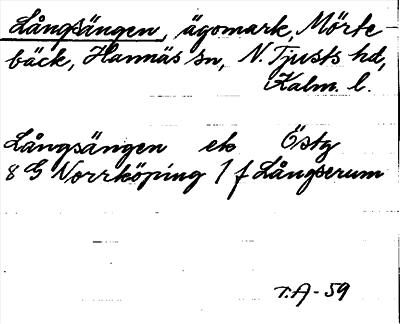 Långsängen, ägomark, Mörte
bäck, Hannäs sn, N. Tjusts hd,
Kalm. l.
Långsängen ek Östg
8 G Norrköping 1 f Långserum
T.A-59